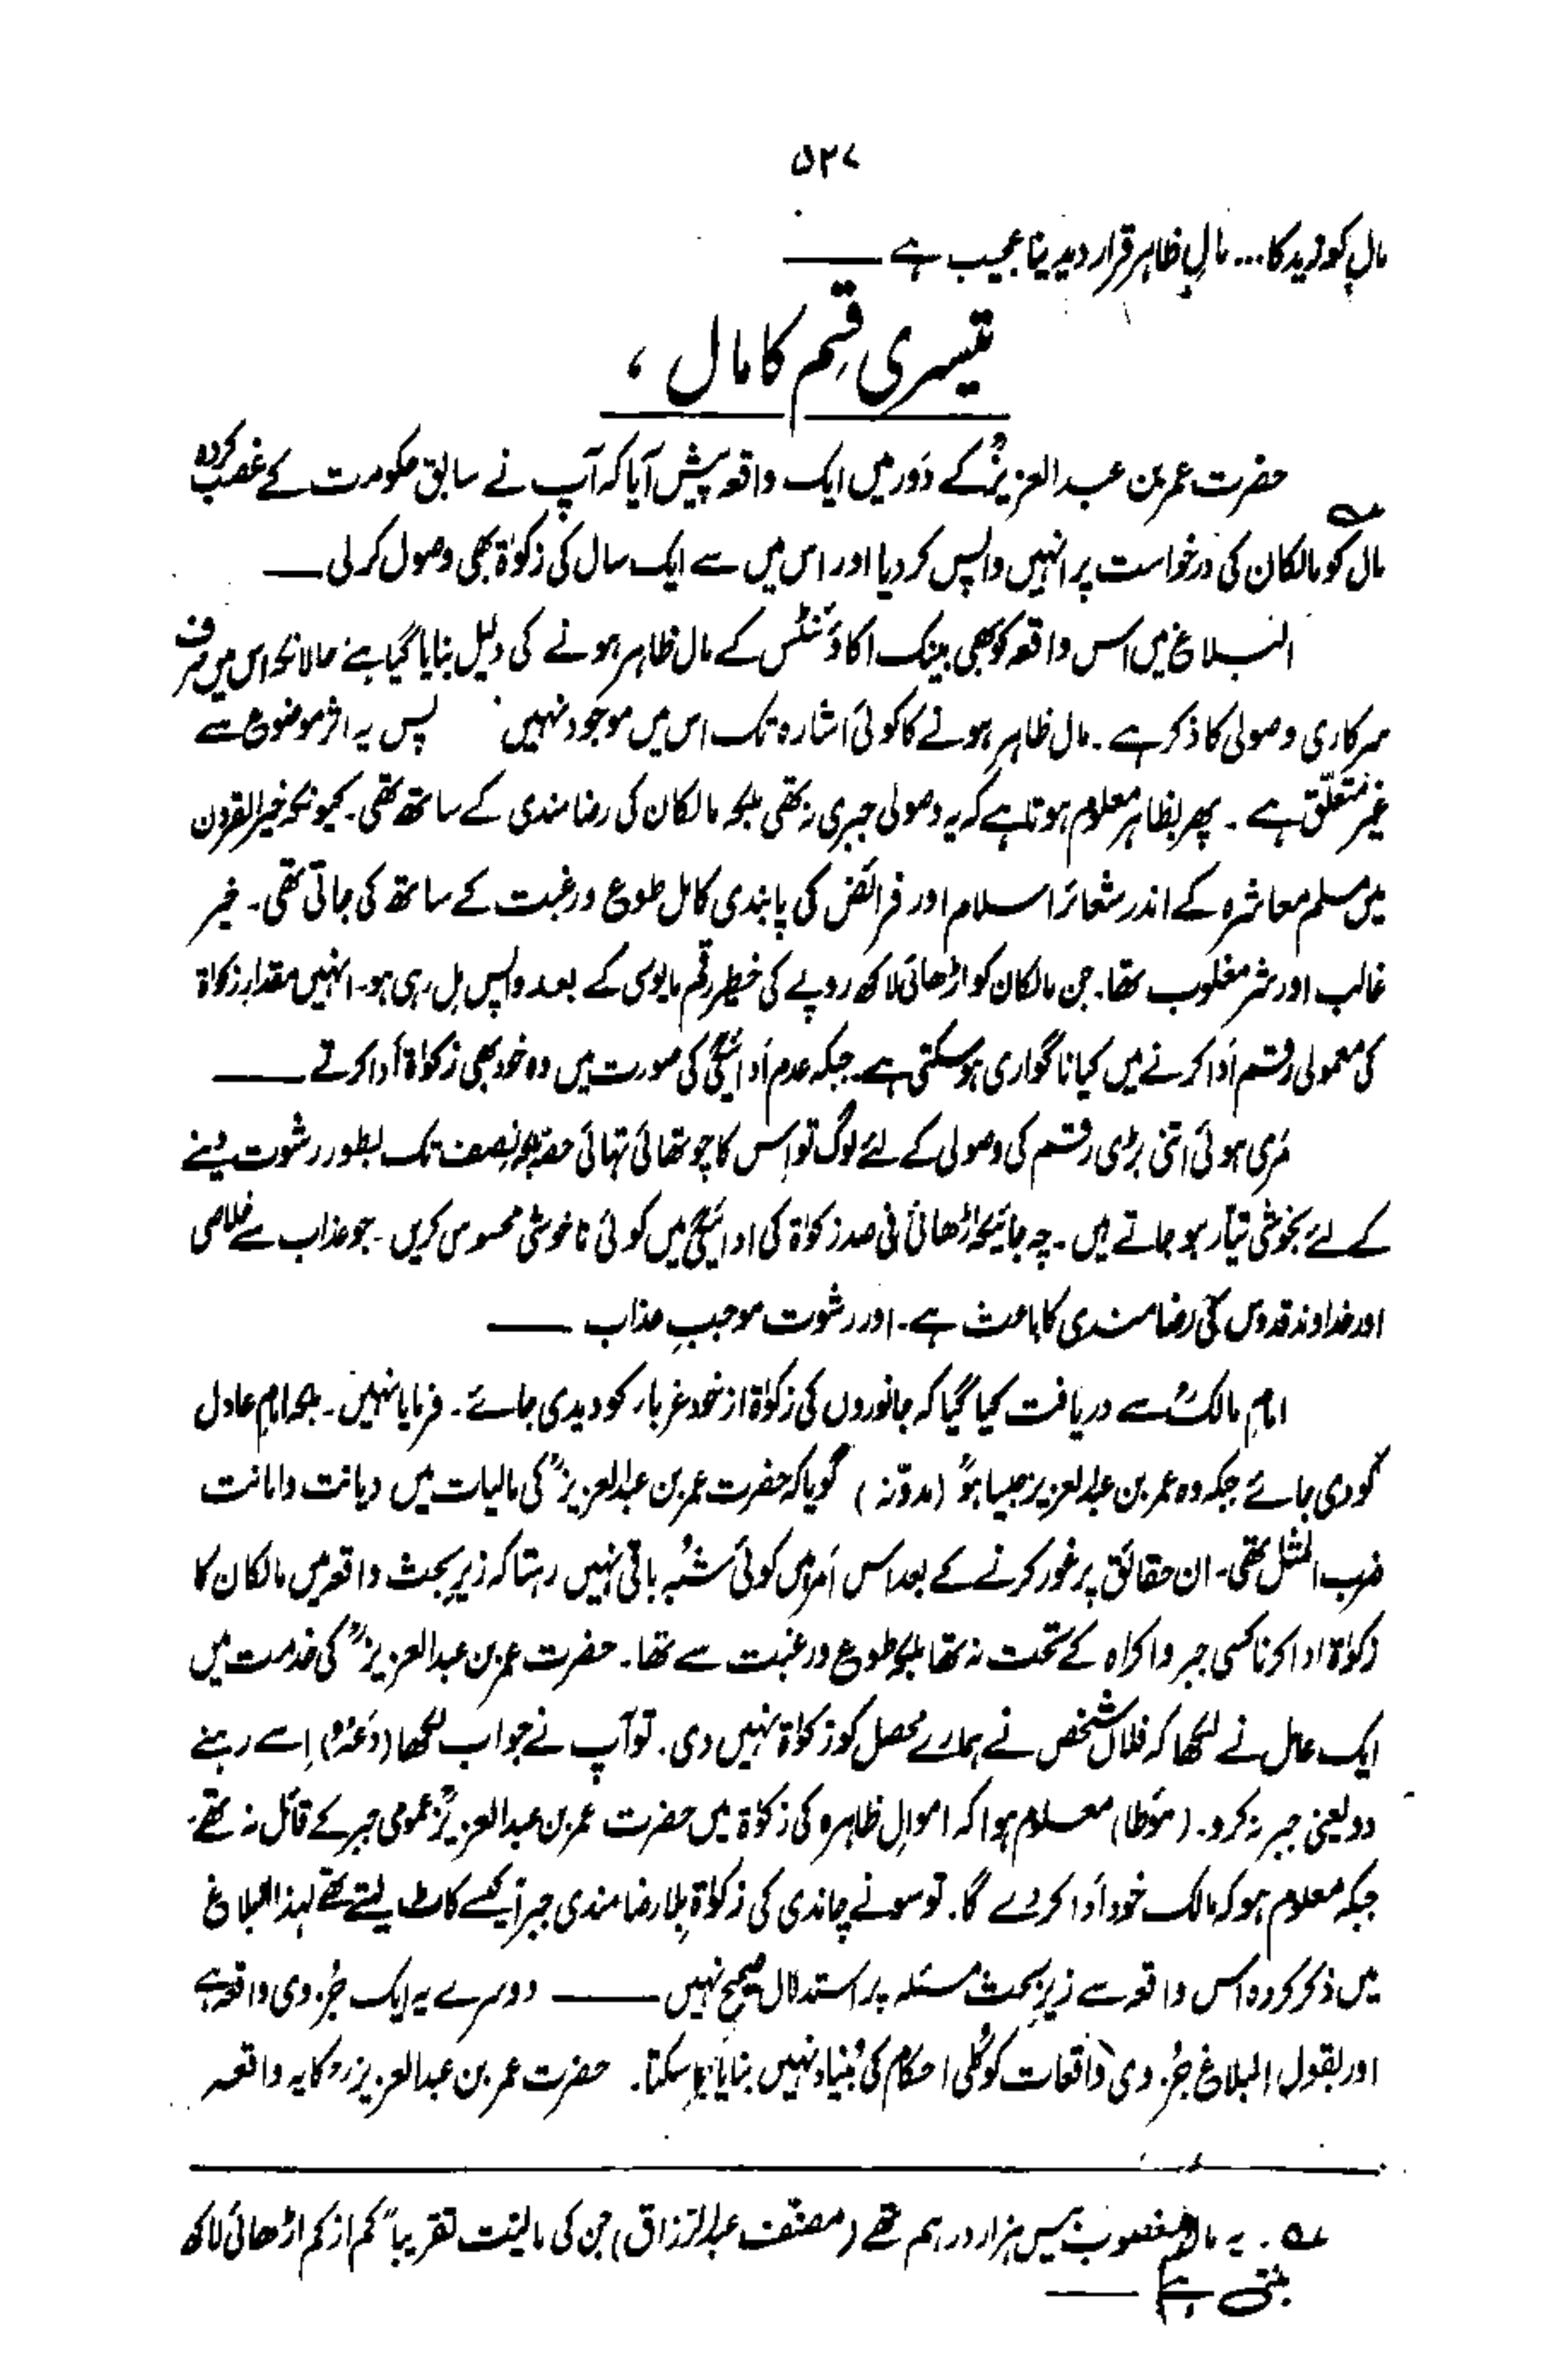 ۵۲۷
مال کو زید کا... مالِ ظاہر قرار دیدینا عجیب ہے ــــــــ
تیسری قسم کا مال ،
حضرت عمر بن عبدالعزیزؒ کے دَور میں ایک واقعہ پیش آیا کہ آپ نے سابق حکومت کے غصب کردہ
مال کو مالکان کی درخواست پر انہیں واپس کر دیا اور اس میں سے ایک سال کی زکوٰۃ بھی وصول کر لی ــــــ
البلاغ میں اس واقعہ کو بھی بینک اکاؤنٹس کے مال ظاہر ہونے کی دلیل بنایا گیا ہے حالانکہ اس میں صرف
سرکاری وصولی کا ذکر ہے ۔ مال ظاہر ہونے کا کوئی اشارہ تک اس میں موجود نہیں پس یہ اثر موضوع سے
غیر متعلق ہے ۔ پھر بظاہر معلوم ہوتا ہے کہ یہ وصولی جبری نہ تھی بلکہ مالکان کی رضامندی کے ساتھ تھی ۔ کیونکہ خیرالقرون
میں مسلم معاشرہ کے اندر شعائر اسلام اور فرائض کی پابندی کامل طوع ورغبت کے ساتھ کی جاتی تھی ۔ خیر
غالب اور شر مغلوب تھا ۔ جن مالکان کو اڑھائی لاکھ روپے کی خطیر رقم مایوسی کے بعد واپس مل رہی ہو ۔ انہیں مقدار زکوٰۃ
کی معمولی رقم اَدا کرنے میں کیا ناگواری ہو سکتی ہے ۔ جبکہ عدم اَدائیگی کی صورت میں وہ خود بھی زکوٰۃ اَدا کرتے ــــــــ
مَری ہوئی اتنی بڑی رقم کی وصولی کے لئے لوگ تو اِس کا چوتھائی تہائی حصہ بلکہ نصف تک بطور رشوت دینے
کے لئے بخوشی تیار ہو جاتے ہیں ۔ چہ جائیکہ اڑھائی فی صد زکوٰۃ کی ادائیگی میں کوئی ناخوشی محسوس کریں ۔ جو عذاب سے خلاصی
اور خداوند قدوس کی رضامندی کا باعث ہے ۔ اور رشوت موجبِ عذاب ــــــــ
امامِ مالکؒ سے دریافت کیا گیا کہ جانوروں کی زکوٰۃ از خود غرباء کو دیدی جائے ۔ فرمایا نہیں ۔ بلکہ امامِ عادل
کو دی جائے جبکہ وہ عمر بن عبدالعزیز جیسا ہو (مدوّنہ) گویا کہ حضرت عمر بن عبدالعزیزؒ کی مالیات میں دیانت وامانت
ضرب المثل تھی ۔ ان حقائق پر غور کرنے کے بعد اس اَمر میں کوئی شُبہ باقی نہیں رہتا کہ زیرِ بحث واقعہ میں مالکان کا
زکوٰۃ ادا کرنا کسی جبر واکراہ کے تحت نہ تھا بلکہ طوع ورغبت سے تھا ۔ حضرت عمر بن عبدالعزیزؒ کی خدمت میں
ایک عامل نے لکھا کہ فلاں شخص نے ہمارے محصل کو زکوٰۃ نہیں دی ۔ تو آپ نے جواب لکھا (دَعْہُ) اِسے رہنے
دو یعنی جبر نہ کرو ۔ (مؤطا) معلوم ہوا کہ اموالِ ظاہرہ کی زکوٰۃ میں حضرت عمر بن عبدالعزیزؒ عمومی جبر کے قائل نہ تھے ۔
جبکہ معلوم ہو کہ مالک خود اَدا کر دے گا ۔ تو سونے چاندی کی زکوٰۃ بلا رضامندی جبراً کیسے کاٹ لیتے تھے لہذا البلاغ
میں ذکر کردہ اس واقعہ سے زیرِ بحث مسئلہ پر استدلال صحیح نہیں ــــــــ دوسرے یہ ایک جُزوی واقعہ ہے
اور بقول البلاغ جُزوی واقعات کو کُلی احکام کی بُنیاد نہیں بنایا جا سکتا ۔ حضرت عمر بن عبدالعزیزؒ کا یہ واقعہ
؎ ۔ یہ مال مغصوب بیس ہزار درہم تھے (مصنف عبدالرزاق) جن کی مالیت تقریباً کم از کم اڑھائی لاکھ
بنتی ہے ــــــــ